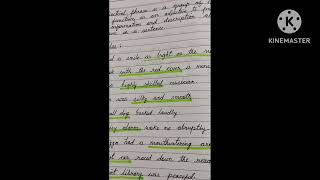 phrase is a group of
function as an adjective to
information and description
in a sentence.
a smile as bright as the
with the red cover is
highly skilled musician.
was silky and smooth
dog barked loudly.
alarm woke me abruptly.
had a mouthwatering
car raced down the
library was peaceful.
KINEMASTER